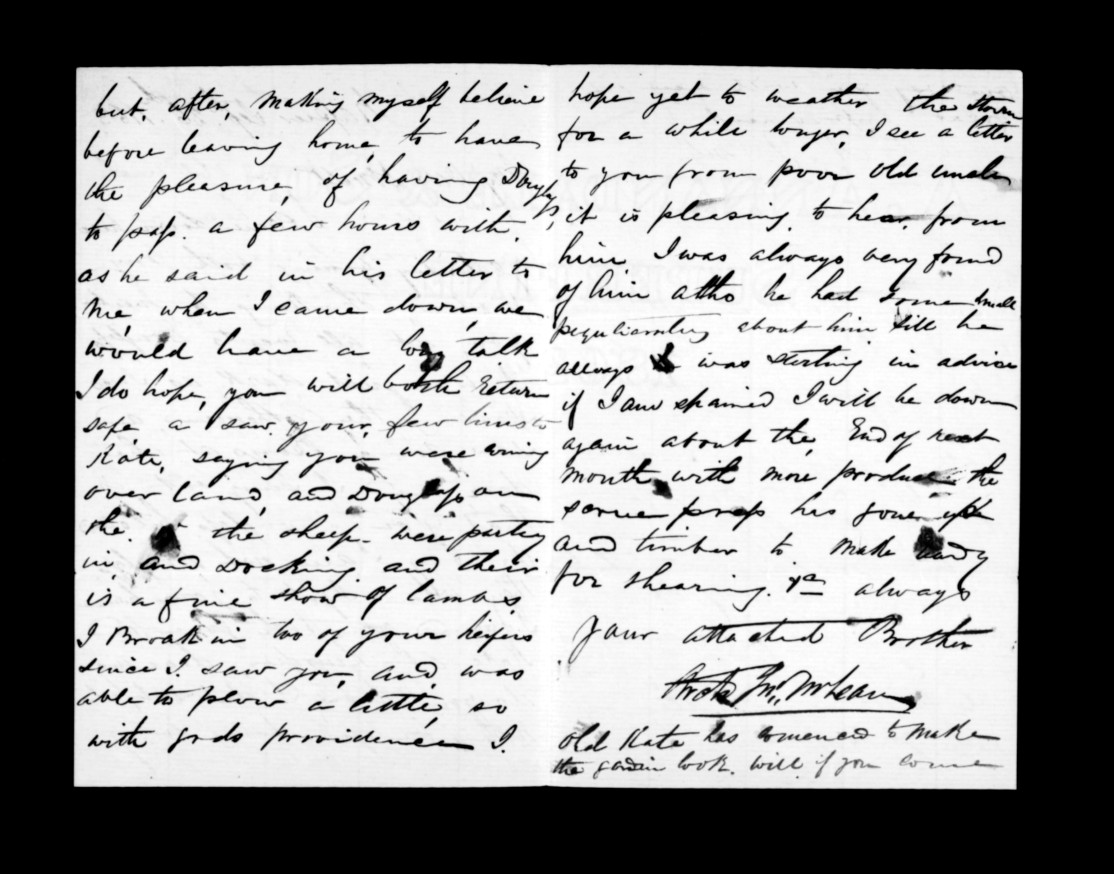 but, after, making myself believe
before leaving home, to have
the pleasure, of having Douglas,
to pass. a few hours with,
as he said in his letter to
me, when I came down, we
would have a long talk
I do hope, you will both return
safe a saw. your, few lines to
Kate, saying you were coming
over land, and Douglass on
the. the sheep. were
in, and Docking. and their
is a fine show of lambs
I Broak in two of your heifers
since I. saw you, and, was
able to plow a little, so
with gods providence I.
hope yet to weather the storm
for a while longer, I see a letter
to you from poor old uncle
it is pleasing, to hear, from
him, I was always very found
of him altho he had some small
about him still he
allways was sterling in advise
if I am spaired I will be down
again about the, End of next
month with more produce the
screw press has gone up
and timber to make ready
for shearing. always
your attached Brother
Archd Jno. McLean
old Kate has comenced to make
the garden look. will. if you come